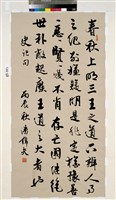 春秋上明三王之道下辨人事
之紀別嫌疑明是非定猶豫善善惡
惡賢賢賤不肖存亡國繼絕
世補敝起廢王道之大者也
史記句 丙辰秋